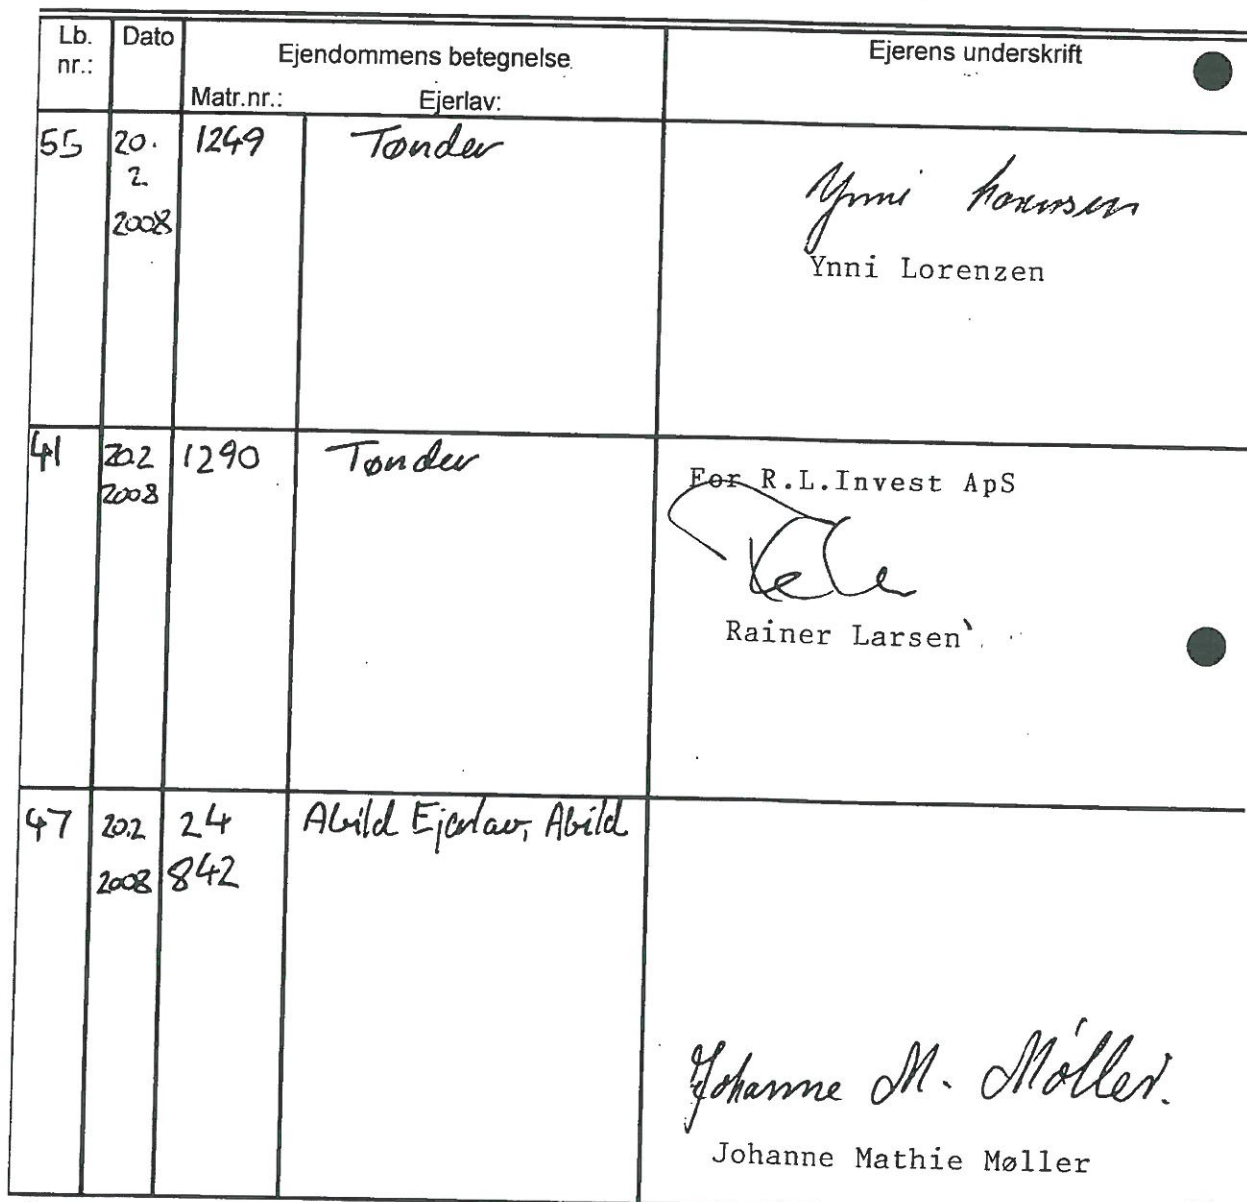 Lb. nr.: Dato Ejendommens betegnelse Ejerens underskrift
Matr.nr.: Ejerlav:
55 20. 2. 2008 1249 Tønder
Ynni Lorenzen
Ynni Lorenzen
41 20.2 2008 1290 Tønder
For R.L.Invest ApS
Rainer Larsen
47 20.2 2008 24 842 Abild Ejerlav, Abild
Johanne M. Møller.
Johanne Mathie Møller